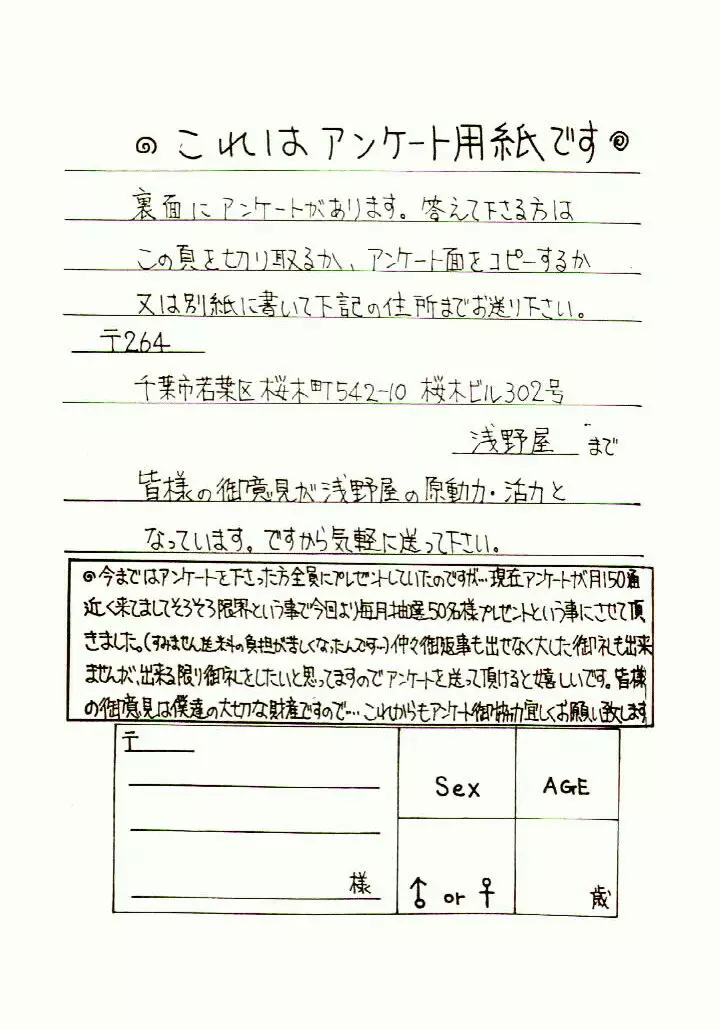 これはアンケート用紙です
裏面にアンケートがあります。答えて下さる方は
この頁を切り取るか、アンケート面をコピーするか
又は別紙に書いて下記の住所までお送り下さい。
〒264
千葉市若葉区桜木町542-10 桜木ビル302号
浅野屋 まで
皆様の御意見が浅野屋の原動力・活力と
なっています。ですから気軽に送って下さい。
◎今まではアンケートを下さった方全員にプレゼントしていたのですが…現在アンケートが月150通
近く来てましてそろそろ限界という事で今日より毎月抽選50名様プレゼントという事にさせて頂
きました。(すみません送料の負担が苦しくなったんですー)仲々御返事も出せなく大した御礼も出来
ませんが、出来る限り御礼をしたいと思ってますのでアンケートを送って頂けると嬉しいです。皆様
の御意見は僕達の大切な財産ですので…これからもアンケート御協力宜しくお願い致します
〒
様
Sex
AGE
♂ or ♀
歳